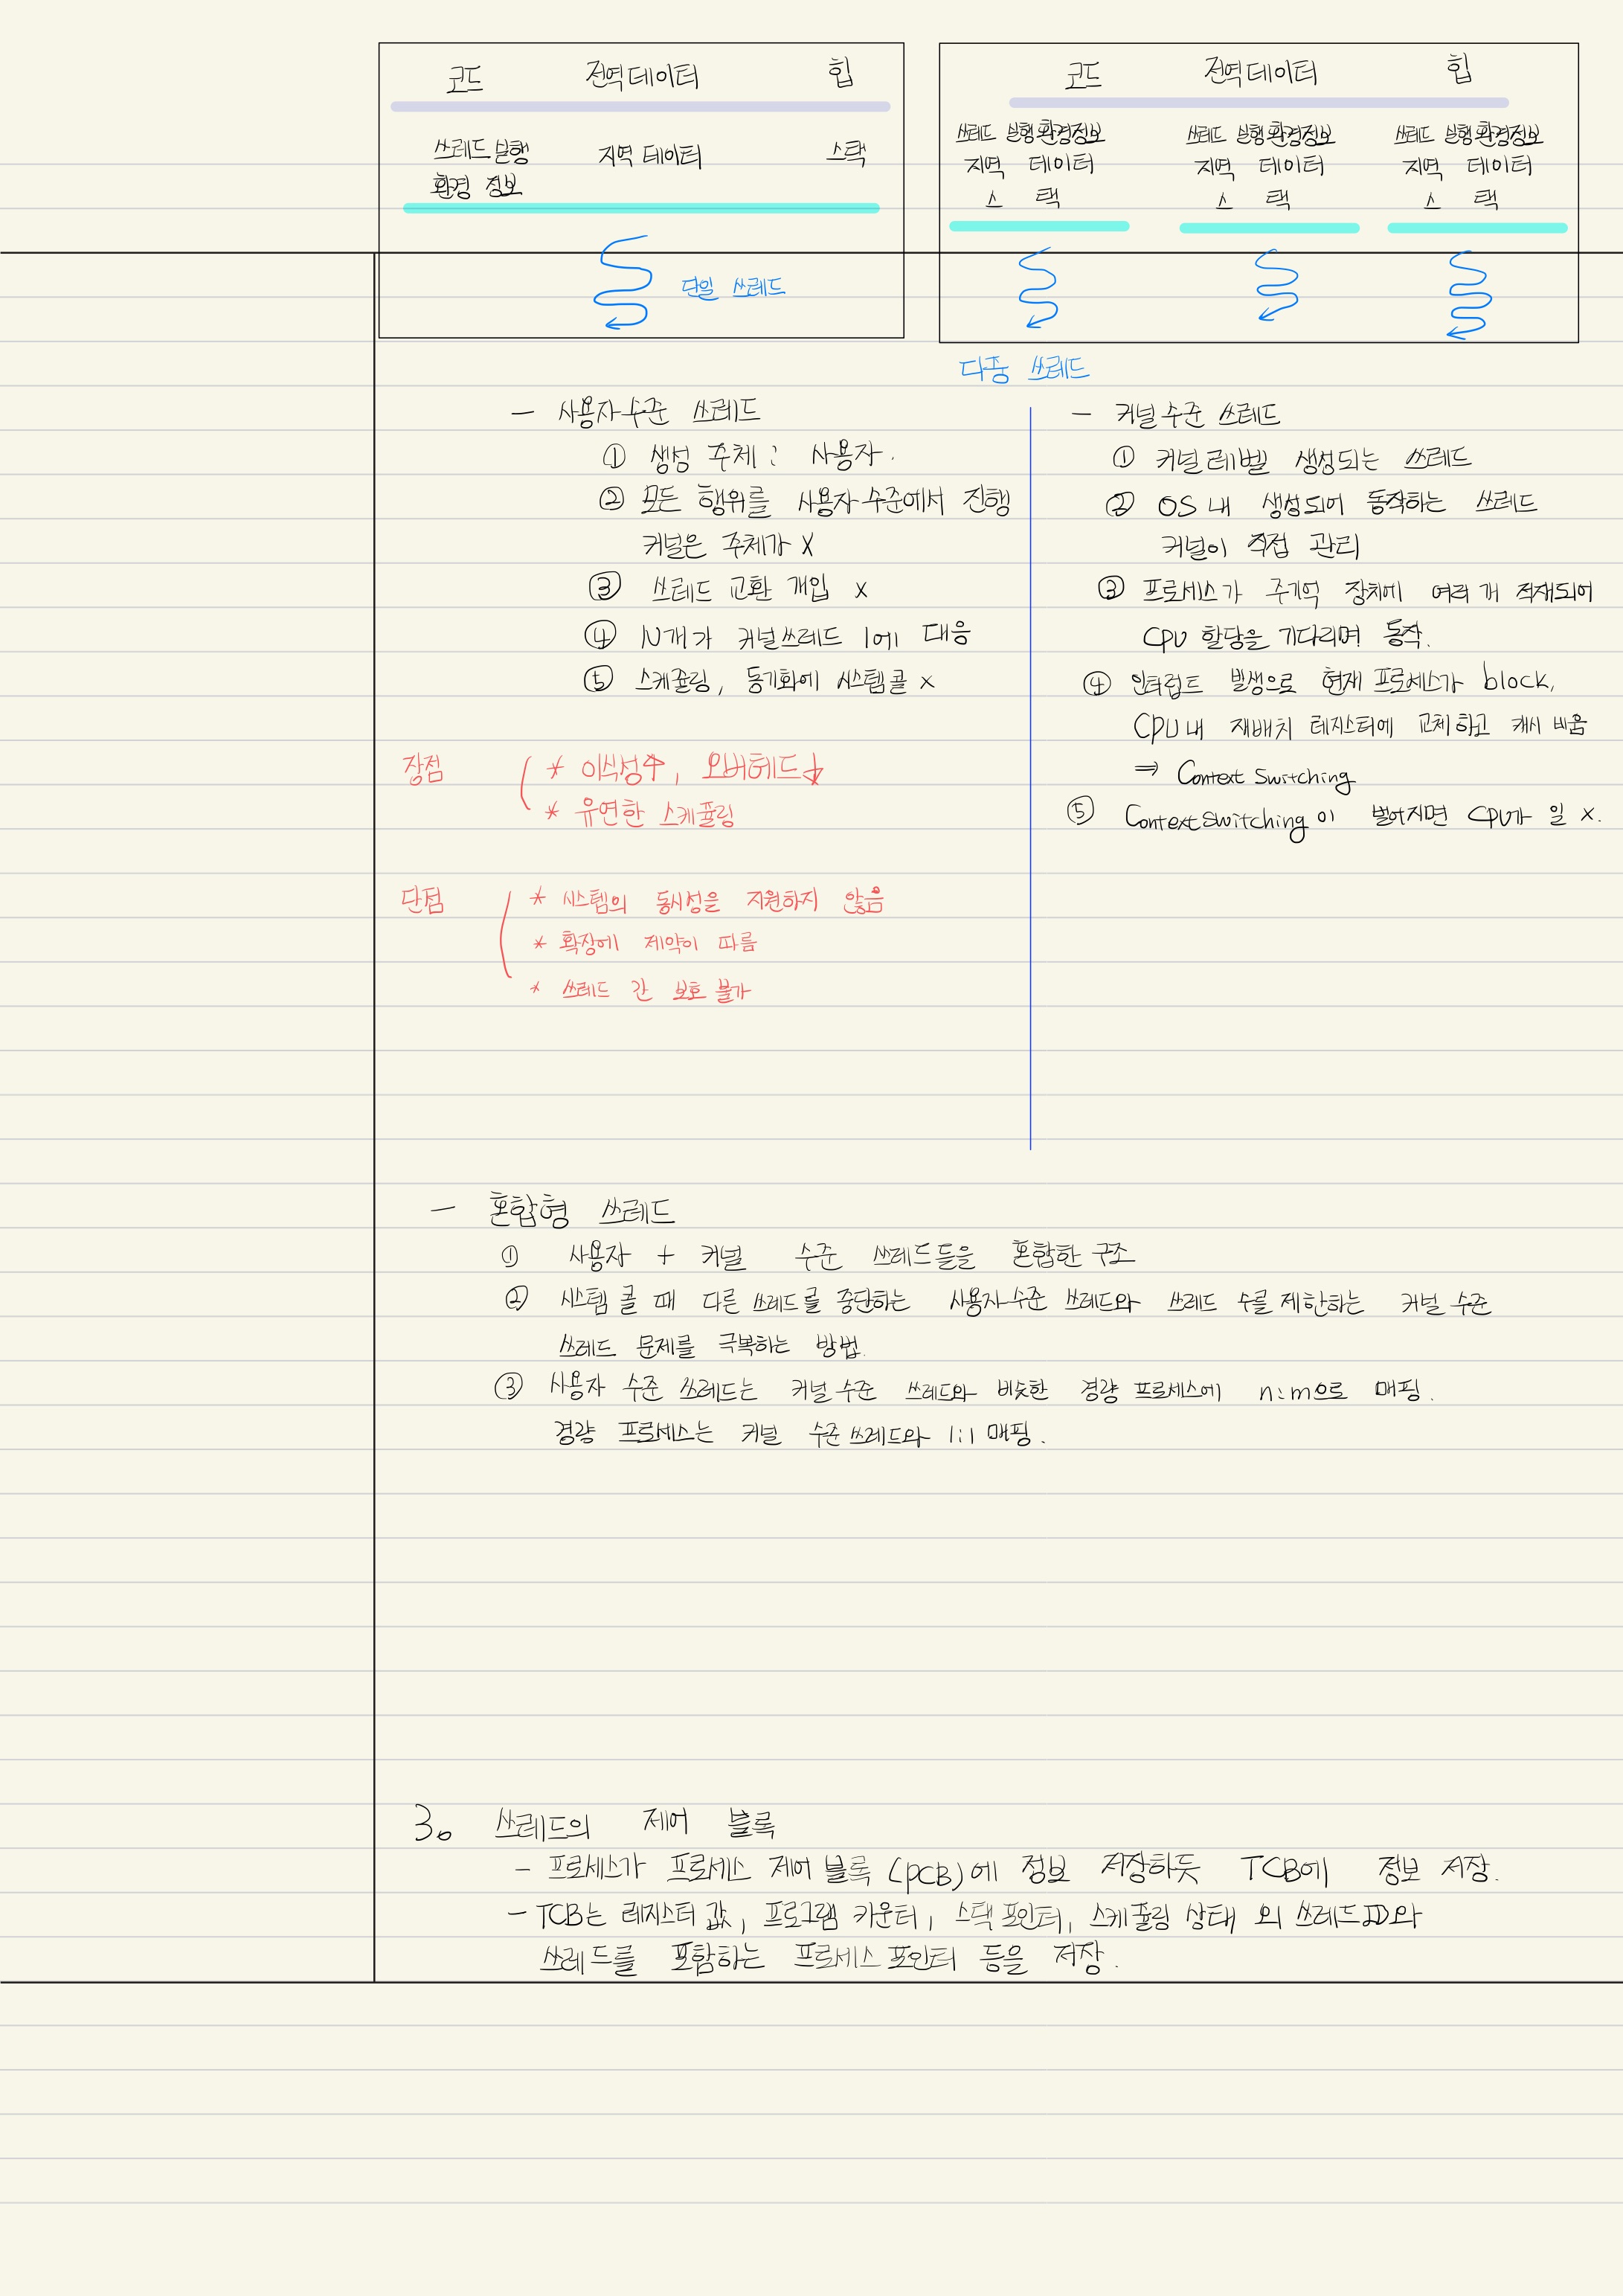 코드 전역데이터 힙
쓰레드 실행 지역 데이터 스택
환경 정보
단일 쓰레드
코드 전역데이터 힙
쓰레드 실행환경정보 쓰레드 실행환경정보 쓰레드 실행환경정보
지역 데이터 지역 데이터 지역 데이터
스 택 스 택 스 택
다중 쓰레드
- 사용자수준 쓰레드
① 생성 주체 : 사용자.
② 모든 행위를 사용자수준에서 진행
커널은 주체가 X
③ 쓰레드 교환 개입 x
④ N개가 커널쓰레드 1에 대응
⑤ 스케쥴링, 동기화에 시스템콜 x
장점
* 이식성↑, 오버헤드↓
* 유연한 스케쥴링
단점
* 시스템의 동시성을 지원하지 않음
* 확장에 제약이 따름
* 쓰레드 간 보호 불가
- 커널수준 쓰레드
① 커널레벨 생성되는 쓰레드
② OS내 생성되어 동작하는 쓰레드
커널이 직접 관리
③ 프로세스가 주기억 장치에 여러개 적재되어
CPU 할당을 기다리며 동작.
④ 인터럽트 발생으로 현재 프로세스가 block,
CPU내 재배치 레지스터에 교체하고 캐시 비움
⇒ Context Switching
⑤ Context switching이 벌어지면 CPU가 일 x.
- 혼합형 쓰레드
① 사용자 + 커널 수준 쓰레드들을 혼합한 구조
② 시스템 콜 때 다른 쓰레드를 중단하는 사용자수준 쓰레드와 쓰레드 수를 제한하는 커널 수준
쓰레드 문제를 극복하는 방법.
③ 사용자 수준 쓰레드는 커널수준 쓰레드와 비슷한 경량 프로세스에 n:m으로 매핑.
경량 프로세스는 커널 수준 쓰레드와 1:1 매핑.
3. 쓰레드의 제어 블록
- 프로세스가 프로세스 제어 블록(PCB)에 정보 저장하듯 TCB에 정보 저장.
- TCB는 레지스터 값, 프로그램 카운터, 스택 포인터, 스케쥴링 상태 외 쓰레드ID와
쓰레드를 포함하는 프로세스 포인터 등을 저장.